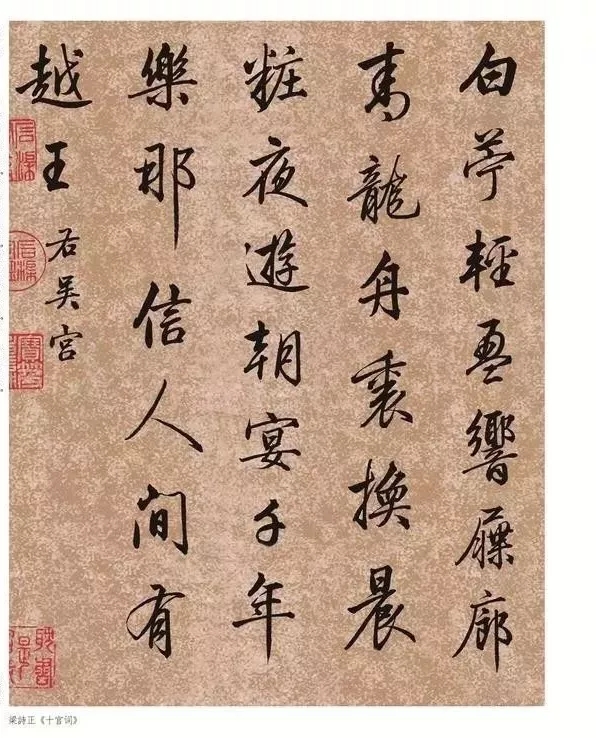 白苧輕盈響屧廊
青龍舟裏換晨
粧夜遊朝宴千年
樂那信人間有
越王
右吳宮
梁詩正《十宫词》